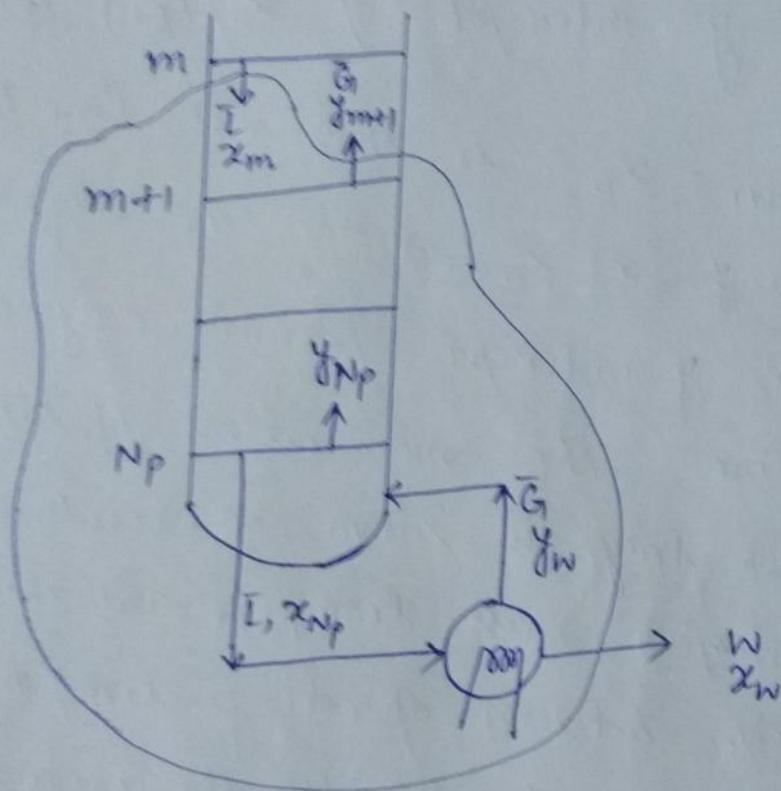 m
L̄
x_m
Ḡ
y_{m+1}
m+1
y_{Np}
N_p
Ḡ
y_w
L̄, x_{Np}
W
x_w